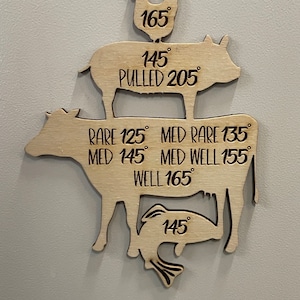 165°
145°
PULLED 205°
RARE 125° MED RARE 135°
MED 145° MED WELL 155°
WELL 165°
145°